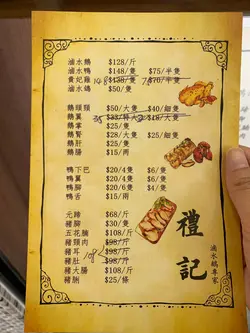 滷水鵝 $128/斤
滷水鴨 $148/隻 $75/半隻
黄杞雞 148 $138/隻 78 $70/半隻
滷水鴿 $50/隻
鵝頭頸 $50/大隻 $40/細隻
鵝翼 35 $33/特大 $18/大隻
鵝掌 $25/隻
鵝腎 $28/大隻 $25/細隻
鵝肝 $28/隻
鵝腸 $50/兩
鴨下巴 $20/4隻 $6/隻
鴨翼 $20/4隻 $6/隻
鴨腳 $20/6隻 $4/隻
鴨舌 $15/兩
元蹄 $68/斤
豬腳 $30/隻
五花腩 $108/斤
豬頸肉 $98/斤
豬耳 108 $98/斤
豬肚 $98/斤
豬大腸 $108/斤
豬脷 $25/條
禮記
滷水鵝專家